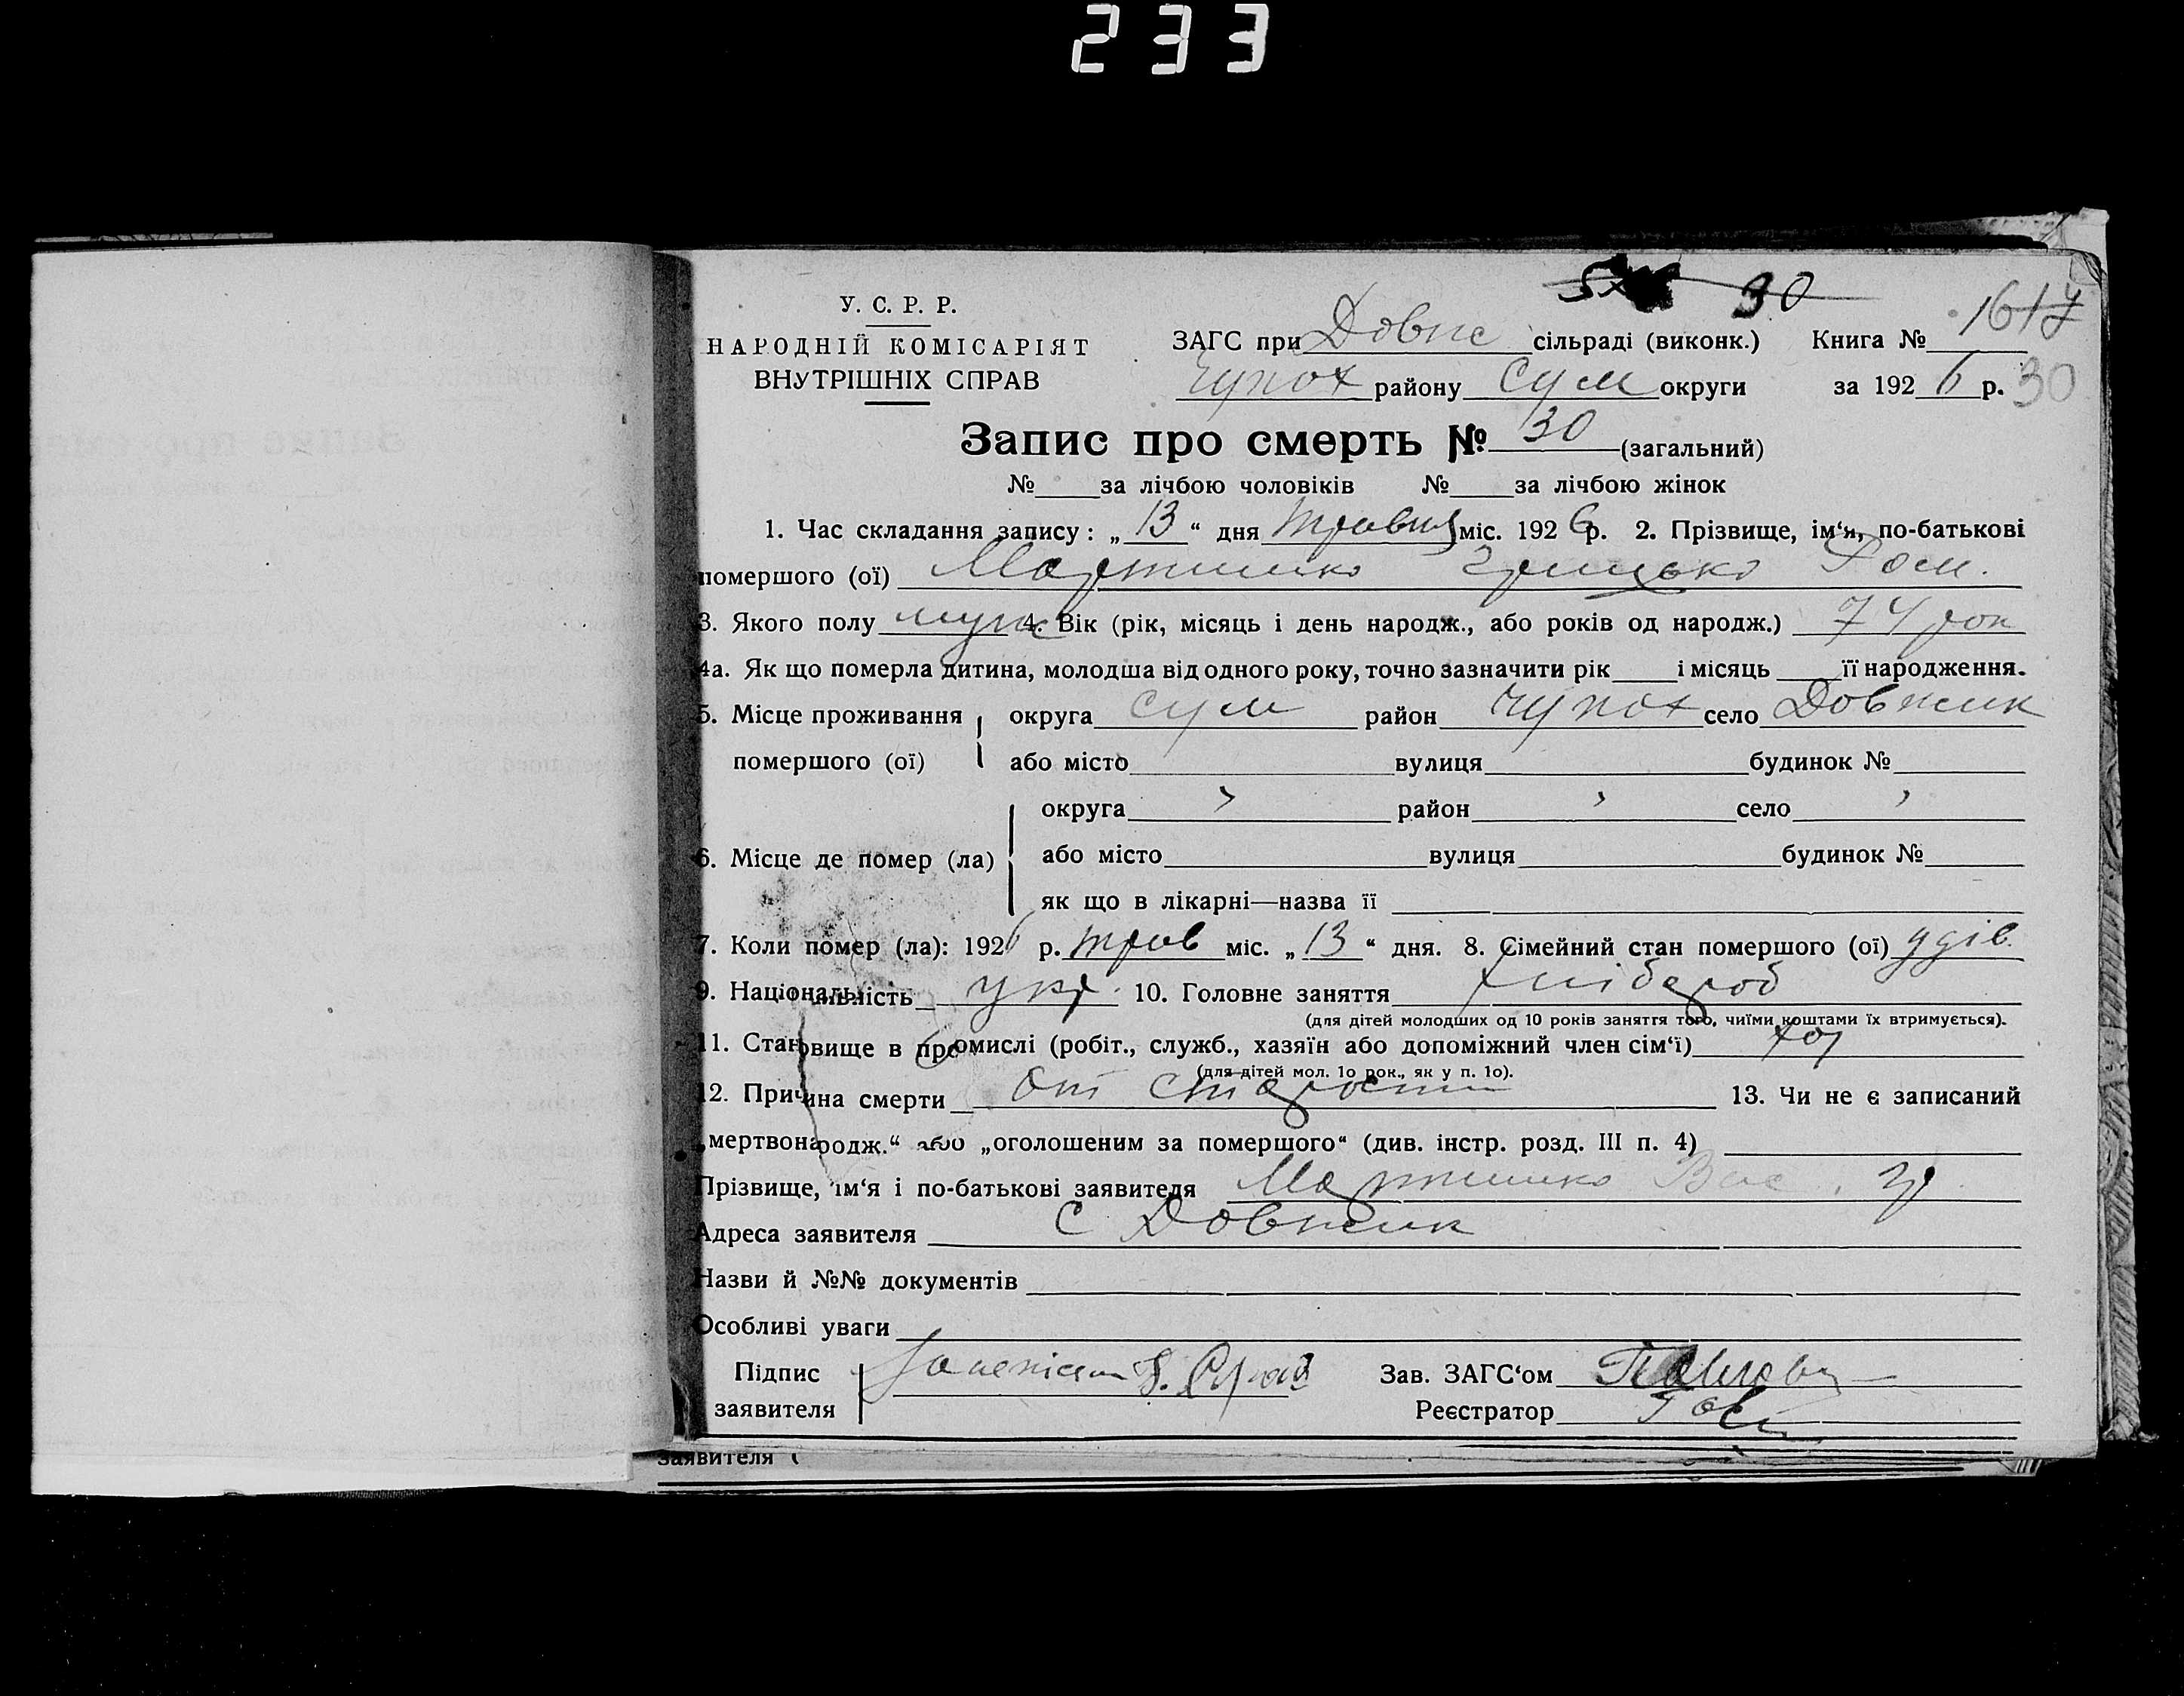 233
30
У. С. Р. Р.
НАРОДНІЙ КОМІСАРІЯТ
ВНУТРІШНІХ СПРАВ
ЗАГС при Довж сільраді (виконк.) Книга № 1617
Чупах району Сум округи за 1926 р. 30
Запис про смерть № 30 (загальний)
№ за лічбою чоловіків № за лічбою жінок
1. Час складання запису: „13“ дня травня міс. 1926 р. 2. Прізвище, ім‘я, по-батькові
помершого (ої) Мартиненко Грицько Ром.
3. Якого полу муж 4. Вік (рік, місяць і день народж., або років од народж.) 74 рок
4а. Як що померла дитина, молодша від одного року, точно зазначити рік і місяць її народження.
5. Місце проживання округа Сум район Чупах село Довжик
помершого (ої) або місто вулиця будинок №
округа " район " село "
6. Місце де помер (ла) або місто вулиця будинок №
як що в лікарні—назва її
7. Коли помер (ла): 1926 р. трав міс. „13“ дня. 8. Сімейний стан помершого (ої) удів.
9. Національність укр. 10. Головне заняття хлібороб
(для дітей молодших од 10 років заняття того, чиїми коштами їх втримується).
11. Становище в промислі (робіт., служб., хазяїн або допоміжний член сім‘ї) хоз
(для дітей мол. 1о рок., як у п. 1о).
12. Причина смерти от старости 13. Чи не є записаний
„мертвонародж.“ або „оголошеним за помершого“ (див. інстр. розд. III п. 4)
Прізвище, ім‘я і по-батькові заявителя Мартиненко Вас. Гр
Адреса заявителя с Довжик
Назви й №№ документів
Особливі уваги
Підпис Зав. ЗАГС‘ом
заявителя Реєстратор
заявителя